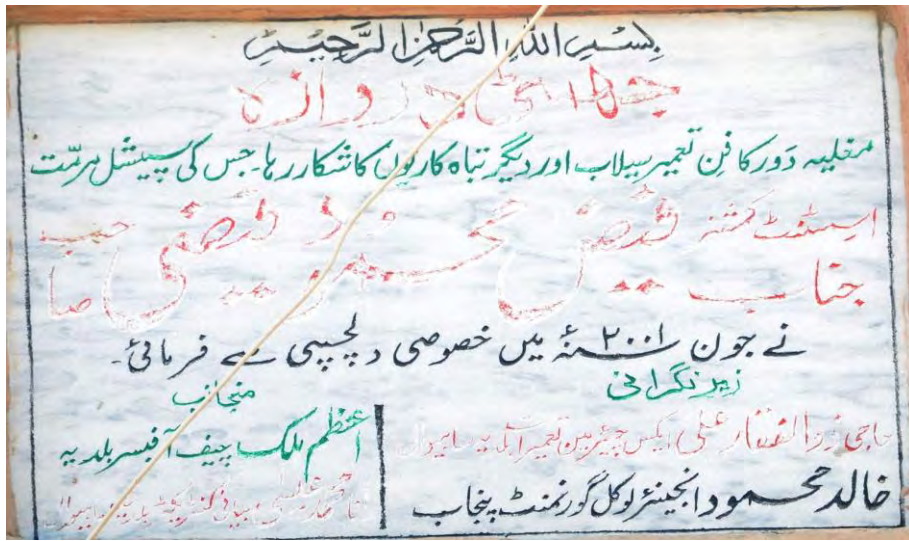 بسم اللہ الرحمٰن الرحیم
دروازہ
مغلیہ دَور کا فنِ تعمیر سیلاب اور دیگر تباہ کاریوں کا شکار رہا۔ جس کی سپیشل مرمّت
اسسٹنٹ کمشنر جناب فیض محمد فیضی صاحب
نے جون ۲۰۰۱ سنہٴ میں خصوصی دلچسپی سے فرمائی۔
زیر نگرانی
حاجی ذوالفقار علی ایکس چیئرمین تعمیر
خالد محمود انجینئر لوکل گورنمنٹ پنجاب
منجانب
اعظم ملک چیف آفیسر بلدیہ